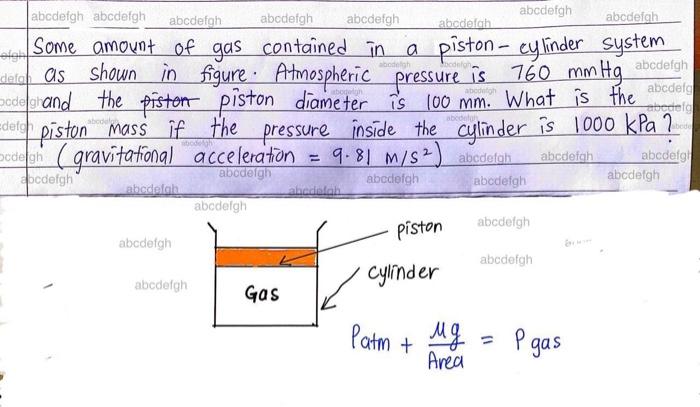 abcdefgh abcdefgh abcdefgh abcdefgh abcdefgh abcdefgh abcdefgh abcdefgh
Some amount of gas contained in a piston - cylinder system
as shown in figure. Atmospheric pressure is 760 mmHg abcdefgh
and the piston piston diameter is 100 mm. What is the
piston mass if the pressure inside the cylinder is 1000 kPa?
(gravitational acceleration = 9.81 m/s²) abcdefgh abcdefgh abcdefgh
abcdefgh abcdefgh abcdefgh abcdefgh abcdefgh
abcdefgh abcdefgh
abcdefgh
piston abcdefgh
abcdefgh
abcdefgh
cylinder
abcdefgh
Gas
Patm + Mg / Area = P gas